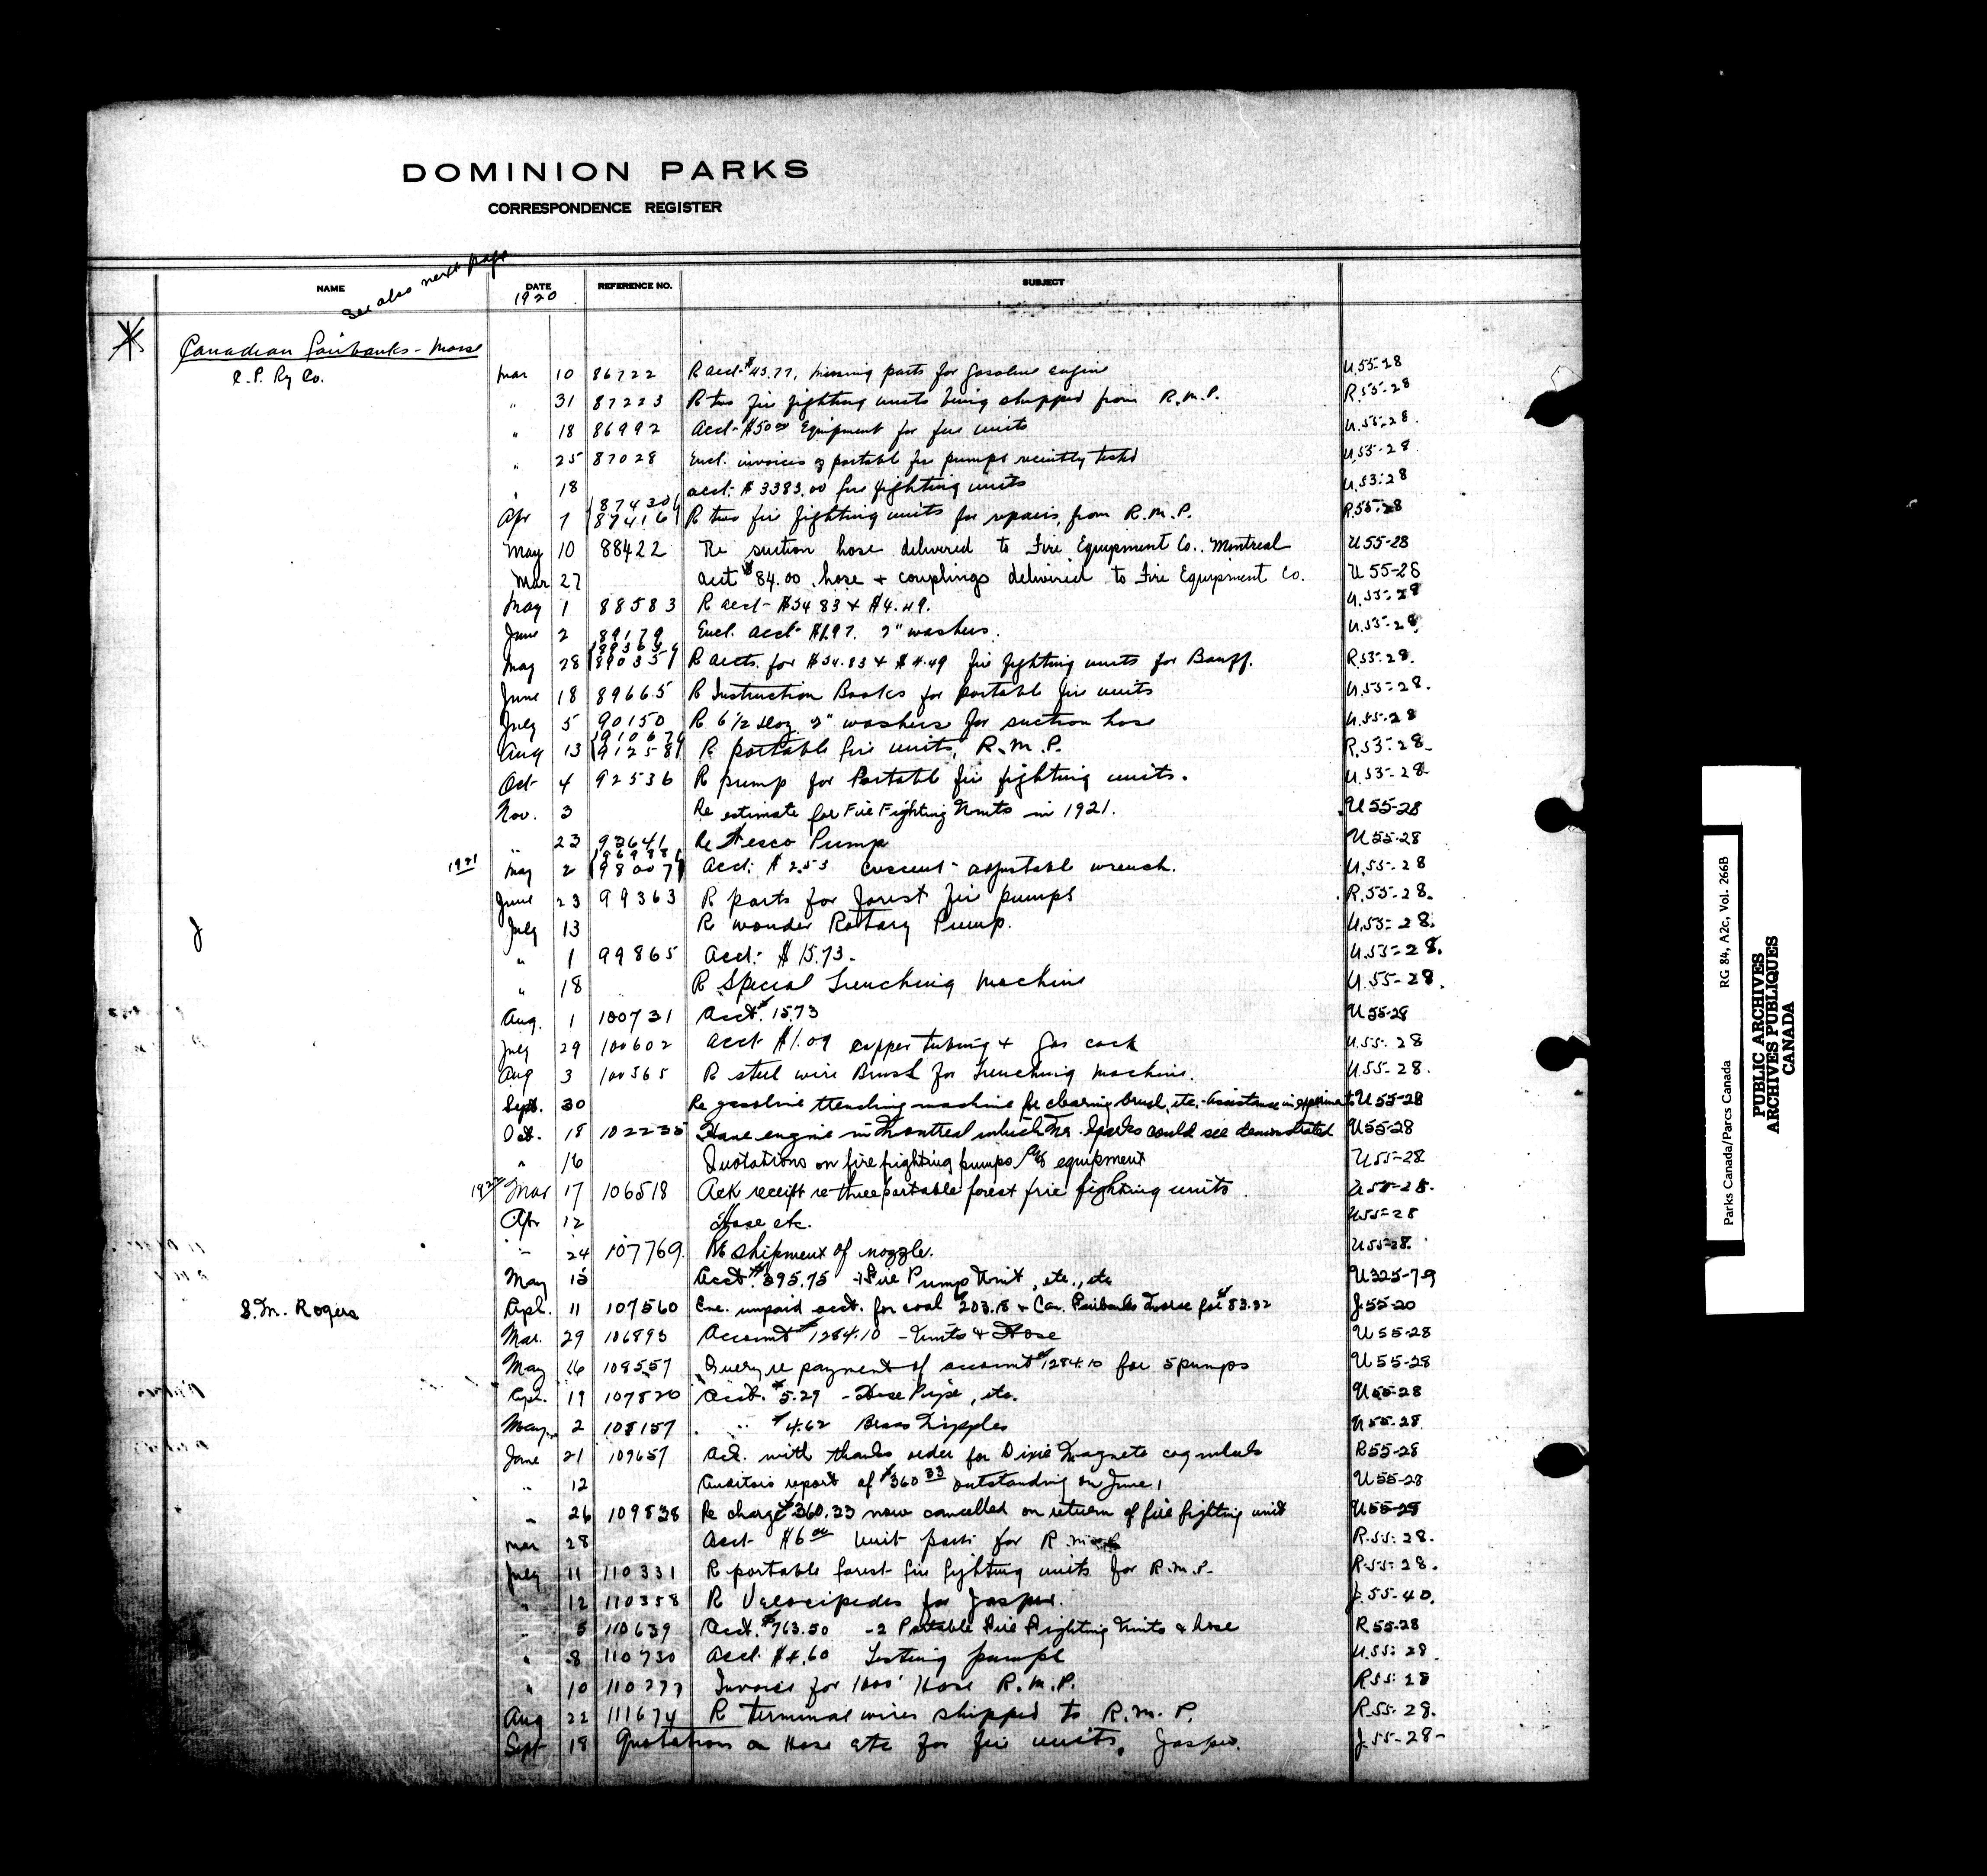 DOMINION PARKS
CORRESPONDENCE REGISTER
See also next page
NAME DATE REFERENCE NO. SUBJECT
1920
Canadian Fairbanks-Morse
C. P. Ry Co.
Mar 10 86722 R acct $43.77, missing parts for gasoline engine U.55-28
" 31 87223 R two fire fighting units being shipped from R.M.P. R.55-28
" 18 86992 Acct $50.00 Equipment for fire units U.55-28.
" 25 87028 Encl. invoices of portable fire pumps recently tested U.55-28
" 18 acct. $3383.00 fire fighting units U.55-28
87430
Apr 7 87416 R two fire fighting units for repairs, from R.M.P. R.55-28
May 10 88422 Re suction hose delivered to Fire Equipment Co. Montreal U55-28
Mar 27 acct $84.00, hose + couplings delivered to Fire Equipment Co. U55-28
May 1 88583 R acct $34.83 + $4.49. U.55-28
June 2 89179 Encl. acct $1.97. 2" washers. U.55-28
May 28 89035 R accts. for $34.83 + $4.49 fire fighting units for Banff. R.55-28.
June 18 89665 R Instruction Books for portable fire units U.55-28.
July 5 90150 R 6 1/2 doz 2" washers for suction hose U.55-28
91067
Aug 13 91258 R portable fire units, R.M.P. R.55-28
Oct 4 92536 R pump for Portable fire fighting units. U.55-28
Nov. 3 Re estimate for Fire Fighting Units in 1921. U55-28
" 23 93641 Re Fesco Pump U55-28
96988
1921 May 2 98007 Acct. $2.53 crescent adjustable wrench. U.55-28
June 23 99363 R parts for forest fire pumps R.55-28.
J July 13 R wonder Rotary Pump. U.55-28.
" 1 99865 Acct. $15.73. U.55-28.
" 18 R Special Trenching Machine U.55-28.
Aug. 1 100731 Acct. $15.73 U55-28
July 29 100602 Acct $1.09 copper tubing + gas cock U.55-28
Aug 3 100565 R steel wire Brush for Trenching Machine. U.55-28.
Sept. 30 Re gasoline trenching machine for clearing brush, etc. - Assistance in experiments U55-28
Oct. 18 102235 Have engine in Montreal which Mr. Sparks could see demonstrated U55-28
" 16 Quotations on fire fighting pumps equipment U55-28
1922 Mar 17 106518 Ack receipt re three portable forest fire fighting units. U55-28.
Apr 12 Hose etc. U55-28
" 24 107769. Re shipment of nozzle. U55-28.
May 15 Acct. $395.75 - Fire Pump Unit, etc., etc U325-79
S.M. Rogers Apl. 11 107560 Enc. unpaid acct. for coal $203.18 + Can. Fairbanks Morse for $83.32 J.55-20
Mar. 29 106893 Account $1284.10 - Units & Hose U55-28
May 16 108557 Query re payment of account $1284.10 for 5 pumps U55-28
Apl. 19 107820 Acct. $5.29 - Hose Pipe, etc. U55-28
May 2 108157 " $4.62 Brass Nipples U55-28
June 21 109657 Ack. with thanks order for Dixie Magneto cog wheels R55-28
" 12 Auditors report of $360.33 outstanding on June 1 U55-28
" 26 109838 Re charge $360.33 now cancelled on return of fire fighting unit U55-28
Mar 28 Acct $6.00 Unit parts for R.M.P. R.55-28.
July 11 110331 R portable forest fire fighting units for R.M.P. R.55-28.
" 12 110358 R Velocipedes for Jasper. J.55-40.
" 5 110639 Acct. $763.50 - 2 Portable Fire Fighting Units & hose R55-28
" 8 110730 Acct $4.60 Testing pumps U.55-28
" 10 110277 Invoice for 1000' Hose R.M.P. R55-28
Aug 22 111674 R terminal wires shipped to R.M.P. R.55-28.
Sept 18 Quotations on Hose etc for fire units, Jasper. J.55-28-
Parks Canada/Parcs Canada RG 84, A2c, Vol. 266B
PUBLIC ARCHIVES
ARCHIVES PUBLIQUES
CANADA